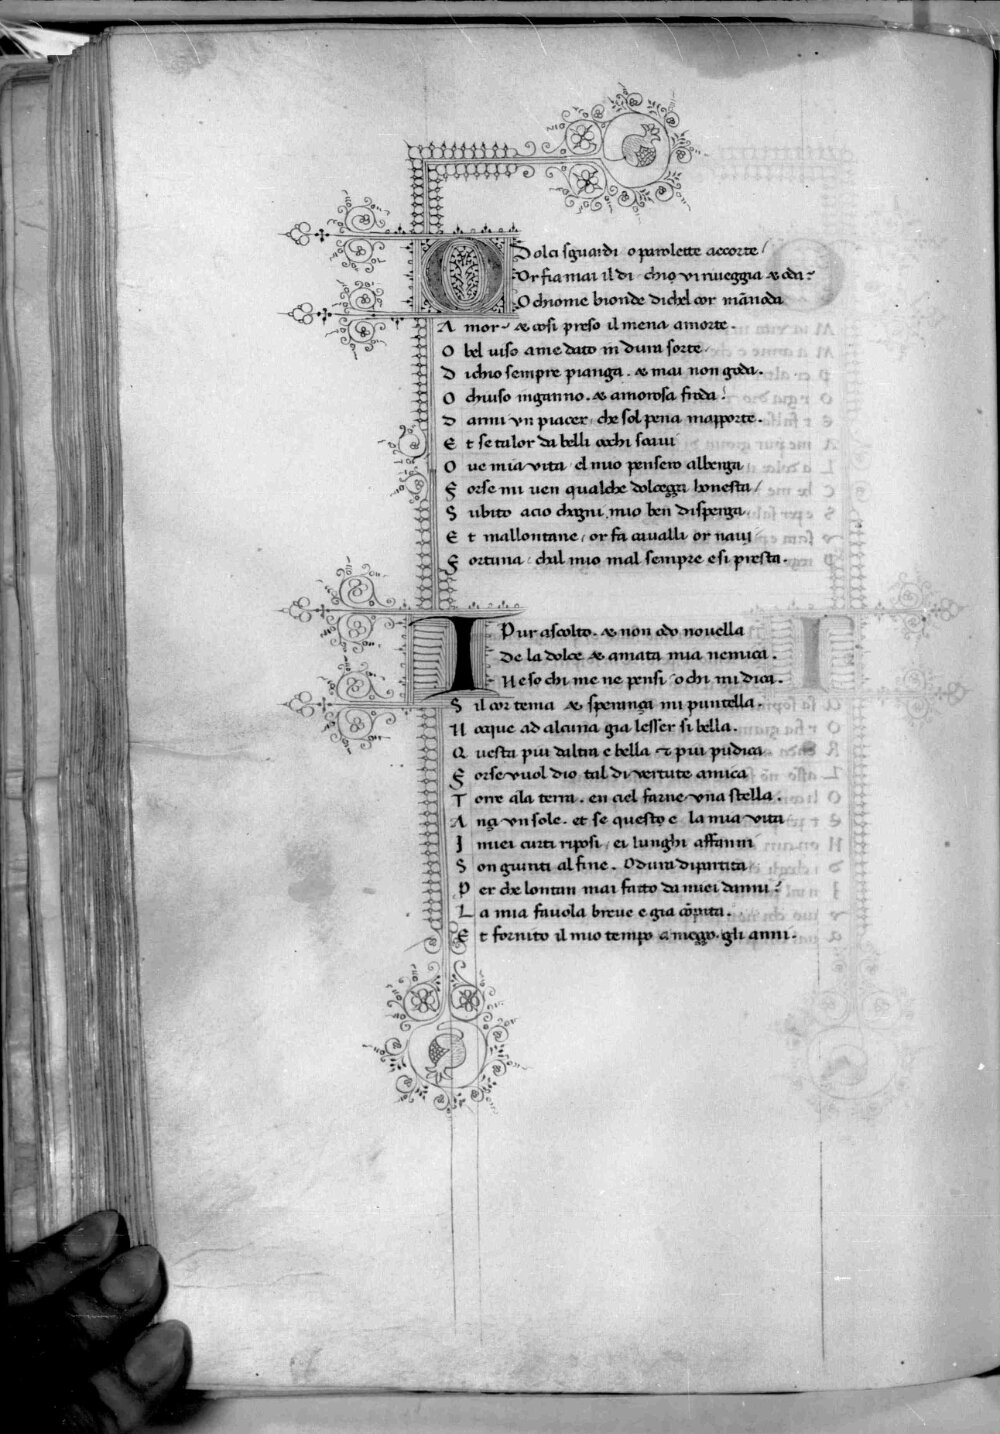 O Dolci sguardi o parolette accorte /
Or fia mai il di chio vi riueggia & oda?
O chiome bionde di chel cor mãnoda
Amor & cosi preso il mena a morte.
O bel uiso a me dato in dura sorte
Di chio sempre pianga. & mai non goda.
O chiuso inganno. & amorosa froda!
Darmi vn piacer che sol pena mapporte.
Et se talor da belli occhi soaui
Oue mia vita el mio pensero alberga
Forse mi uen qualche dolcezza honesta /
Subito acio chogni mio ben disperga
Et mallontane / or fa caualli or naui
Fortuna chal mio mal sempre e si presta.
I Pur ascolto. & non odo nouella
De la dolce & amata mia nemica.
Ne so chi me ne pensi o chi mi dica.
Sil cor tema & speranza mi puntella.
Nocque ad alcuna gia lesser si bella.
Questa piu daltra e bella & piu pudica
Forse vuol dio tal di vertute amica
Torre ala terra. en ciel farne vna stella.
Anzi vn sole. et se questo e la mia vita
I miei curti riposi / ei lunghi affanni
Son giunti al fine. O dura dipartita
Per che lontan mai fatto da miei danni?
La mia fauola breue e gia cõpita.
Et fornito il mio tempo a mezzo gli anni.